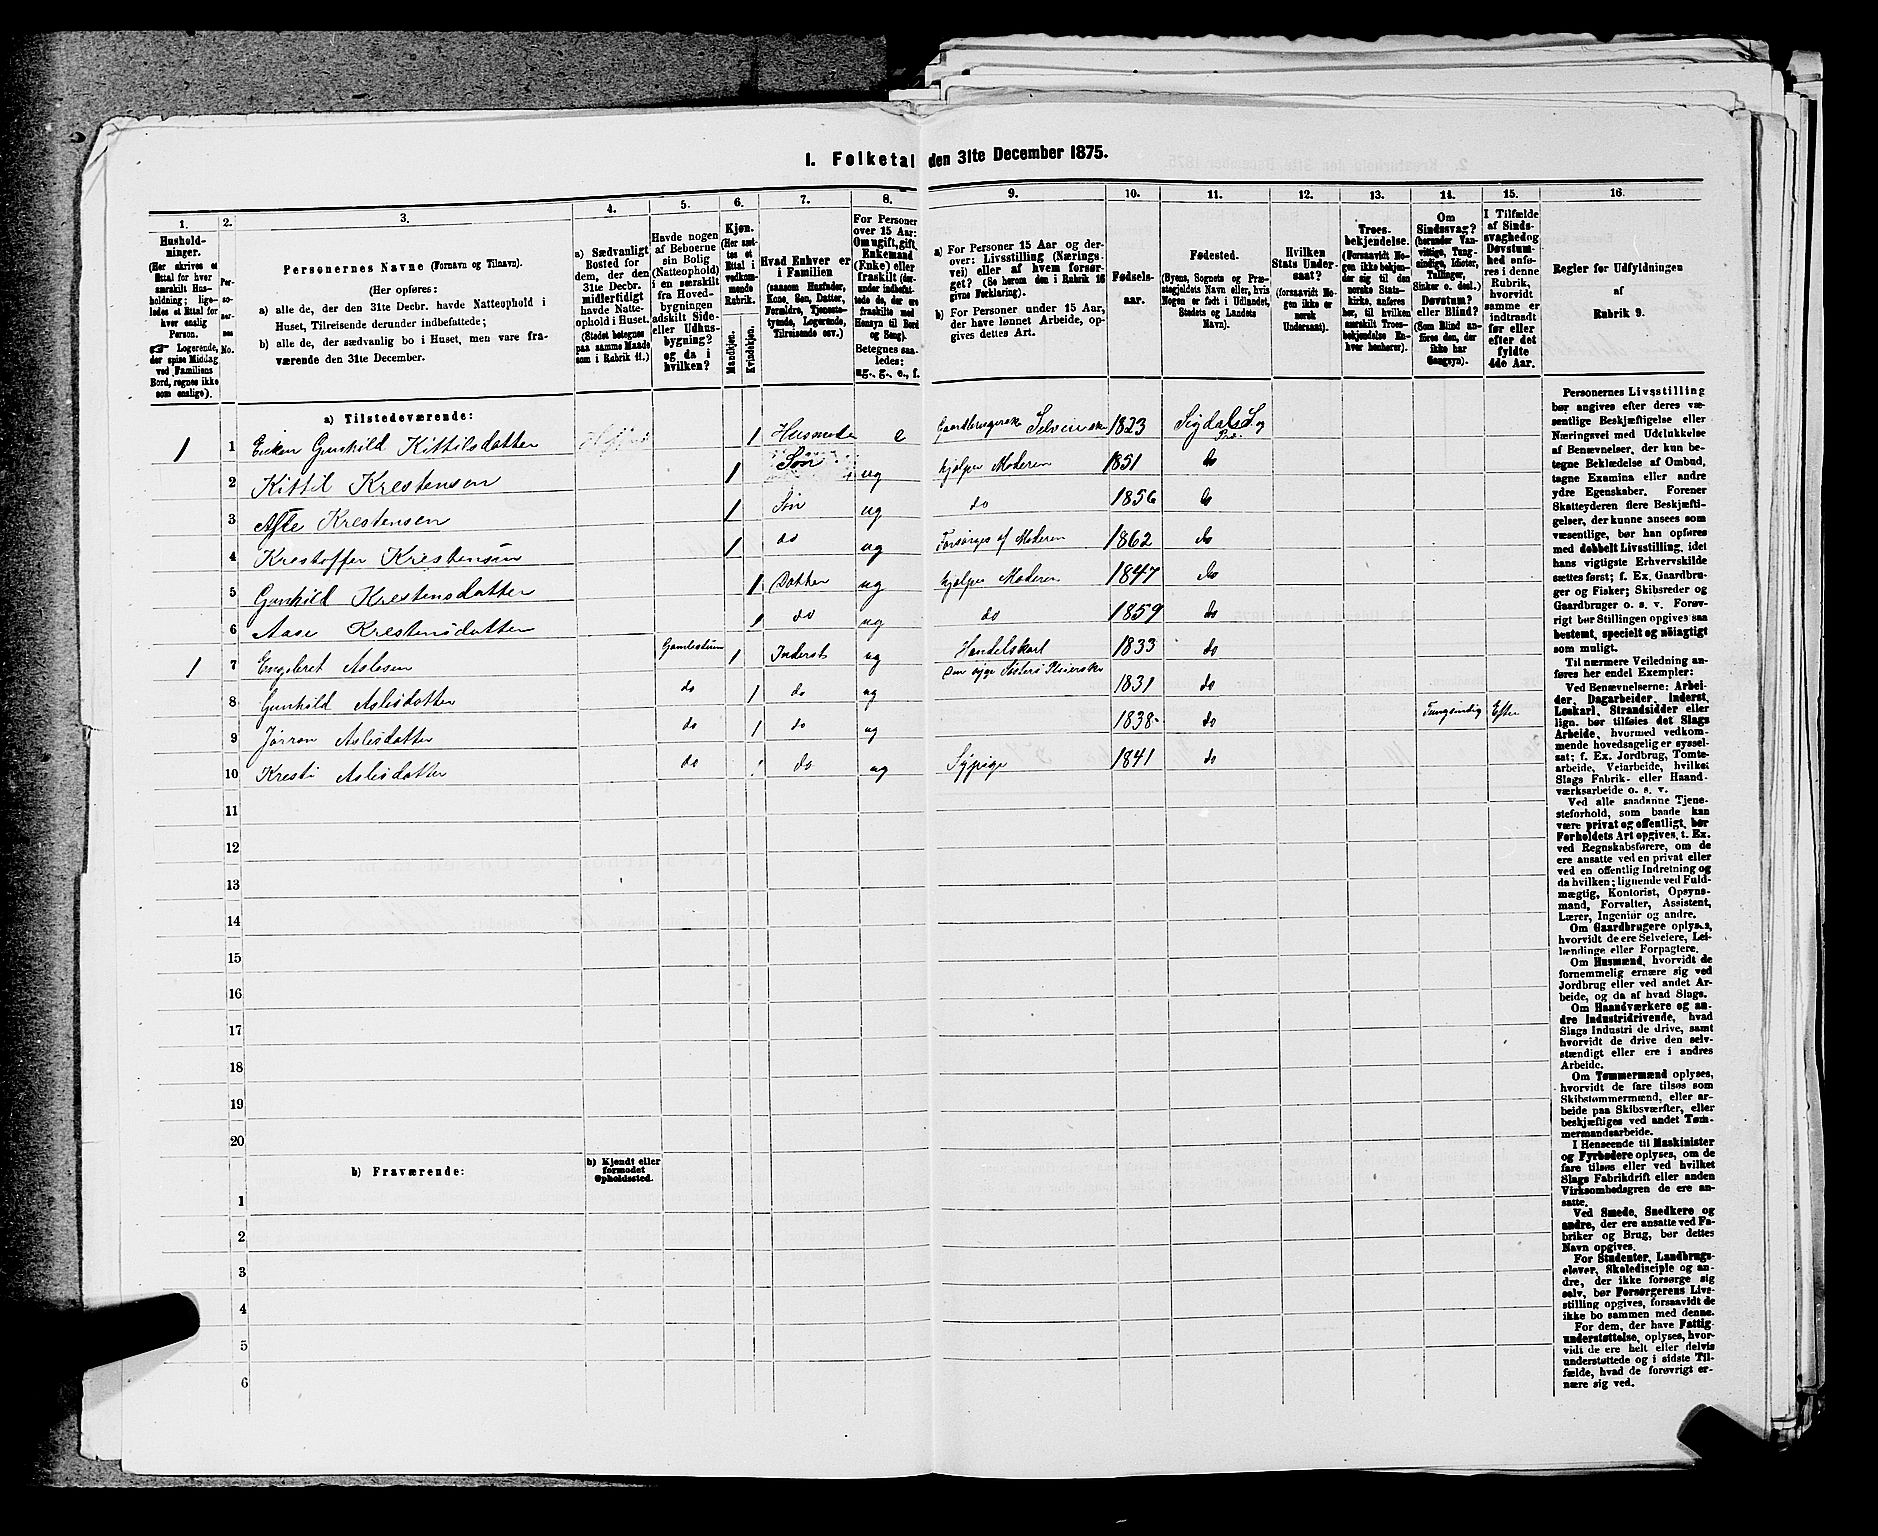 1. Folketal den 31te December 1875.
1.
2.
3.
4.
5.
6.
7.
8.
9.
10.
11.
12.
13.
14.
15.
16.
Hushold-
ninger.
(Her skrives et
Ettal for hver
særskilt Hus-
holdning; lige-
ledes et Ettal for
hver enslig
Person.
☞ Logerende,
der spise Middag
ved Familiens
Bord, regnes ikke
som enslige).
Per-
so-
ner-
nes
No.
Personernes Navne (Fornavn og Tilnavn).
(Her opføres:
a) alle de, der den 31te Decbr. havde Natteophold i
Huset, Tilreisende derunder indbefattede;
b) alle de, der sædvanlig bo i Huset, men vare fra-
værende den 31te December.
a) Sædvanligt
Bosted for
dem, der den
31te Decbr.
midlertidigt
havde Natte-
ophold i Huset.
(Stedet betegnes
paa samme Maade
som i Rubrik 11.)
Havde nogen
af Beboerne
sin Bolig
(Natteophold)
i en særskilt
fra Hoved-
bygningen
adskilt Side-
eller Udhus-
bygning?
og da i
hvilken?
Kjøn.
(Her sæt-
tes et
Ettal i
vedkom-
mende
Rubrik.
Mandkjøn.
Kvindekjøn.
Hvad Enhver er
i Familien
(saasom Husfader,
Kone, Søn, Datter,
Forældre, Tjeneste-
tyende, Logerende,
Tilreisende osv.)
For Personer
over 15 Aar:
Om ugift, gift,
Enkemand
(Enke) eller
fraskilt (der-
under indbefat-
tede de, der ere
fraskilte med
Hensyn til Bord
og Seng).
Betegnes saa-
ledes:
ug., g., e., f.
a) For Personer 15 Aar og der-
over: Livsstilling (Nærings-
vei) eller af hvem forsør-
get? (Se herom den i Rubrik 16
givne Forklaring).
b) For Personer under 15 Aar,
der have lønnet Arbeide, op-
gives dettes Art.
Fødsels-
aar.
Fødested.
(Byens, Sognets og Præ-
stegjeldets Navn eller, hvis
Nogen er født i Udlandet,
Stedets og Landets
Navn).
Hvilken
Stats Under-
saat?
(forsaavidt No-
gen ikke er
norsk
Undersaat).
Troes-
bekjendelse.
(Forsaavidt No-
gen ikke bekjen-
der sig til den
norske Stats-
kirke, anføres
her, til hvilken
særskilt Troes-
bekjendelse En-
hver henhører).
Om
Sindssvag?
(herunder Van-
vittige, Tung-
sindige, Idioter,
Tullinger,
Sinker o. desl.)
Døvstum?
eller Blind?
(Som Blind an-
føres den, der
ikke har
Gangsyn).
I Tilfælde
af Sinds-
svaghed og
Døvstum-
hed anfø-
res i denne
Rubrik,
hvorvidt
samme er
indtraadt
før eller
efter det
fyldte
4de Aar.
Regler for Udfyldningen
af
Rubrik 9.
a) Tilstedeværende:
1 1 Enken Gunhild Kittilsdatter 1 Husmoder e Gaardbrugerske Selveierske 1823 Sigdals S. og Pr.
2 Kittil Krestensen 1 Søn ug hjælper Moderen 1851 do
3 Asle Krestensen 1 Søn ug do 1856 do
4 Krestoffer Krestensen 1 do ug Forsørges af Moderen 1862 do
5 Gunhild Krestensdatter 1 Datter ug hjælper Moderen 1847 do
6 Aase Krestensdatter 1 do ug do 1859 do
1 7 Engebret Aslesen 1 Inderst ug Handelskarl 1833 do
8 Gunhild Aslesdatter do 1 do ug Den syge Søsters Pleierske 1831 do
9 Jørron Aslesdatter do 1 do ug 1838 do Tungsindig Efter
10 Kresti Aslesdatter do 1 do ug Sypige 1841 do
11
12
13
14
15
16
17
18
19
20
b) Fraværende:
b) Kjendt eller
formodet
Opholdssted.
1
2
3
4
5
6
Personernes Livsstilling
bør angives efter deres væ-
sentlige Beskjæftigelse eller
Næringsvei med Udelukkelse
af Benævnelser, der kun be-
tegne Beklædelse af Ombud,
tagne Examina eller andre
ydre Egenskaber. Forener
Skatteyderen flere Beskjæfti-
gelser, der kunne ansees som
væsentlige, bør han opføres
med dobbelt Livsstilling, idet
hans vigtigste Erhvervskilde
sættes først; f. Ex. Gaardbru-
ger og Fisker; Skibsreder og
Gaardbruger o. s. v. Forøv-
rigt bør Stillingen opgives saa
bestemt, specielt og nøiagtigt
som muligt.
Til nærmere Veiledning an-
føres her endel Exempler:
Ved Benævnelserne: Arbei-
der, Dagarbeider, Inderst,
Løskarl, Strandsidder eller
lign. bør tilføies det Slags
Arbeide, hvormed vedkom-
mende hovedsagelig er syssel-
sat; f. Ex. Jordbrug, Tomte-
arbeide, Veiarbeide, hvilket
Slags Fabrik- eller Haand-
værksarbeide o. s. v.
Ved alle saadanne Tjene-
steforhold, som baade kan
være privat og offentligt, bør
Forholdets Art opgives, t. Ex.
ved Regnskabsførere, om de
ere ansatte ved en privat eller
ved en offentlig Indretning og
da hvilken; lignende ved Fuld-
mægtig, Kontorist, Opsyns-
mand, Forvalter, Assistent,
Lærer, Ingeniør og andre.
Om Gaardbrugere oplyses,
hvorvidt de ere Selveiere, Lei-
lændinge eller Forpagtere.
Om Husmænd, hvorvidt de
fornemmelig ernære sig ved
Jordbrug eller ved andet Ar-
beide, og da af hvad Slags.
Om Haandværkere og an-
dre Industridrivende, hvad
Slags Industri de drive, samt
hvorvidt de drive den selv-
stændigt eller ere i andres
Arbeide.
Om Tømmermænd oplyses,
hvorvidt de fare tilsøs som
Skibstømmermænd, eller ar-
beide paa Skibsværfter, eller
beskjæftiges ved andet Tøm-
mermandsarbeide.
I Henseende til Maskinister
og Fyrbødere oplyses, om de
fare tilsøs eller ved hvilket
Slags Fabrikdrift eller anden
Virksomhedsgren de ere an-
satte.
Ved Smede, Snedkere og
andre, der ere ansatte ved Fa-
briker og Brug, bør dettes
Navn opgives.
For Studenter, Landbrugs-
elever, Skoledisciple og an-
dre, der ikke forsørge sig
selv, bør Forsørgerens Livs-
stilling opgives, forsaavidt de
ikke bo sammen med denne.
For dem, der have Fattig-
understøttelse, oplyses, hvor-
vidt de ere helt eller delvis
understøttede og i sidste Til-
fælde, hvad de forøvrigt er-
nære sig ved.